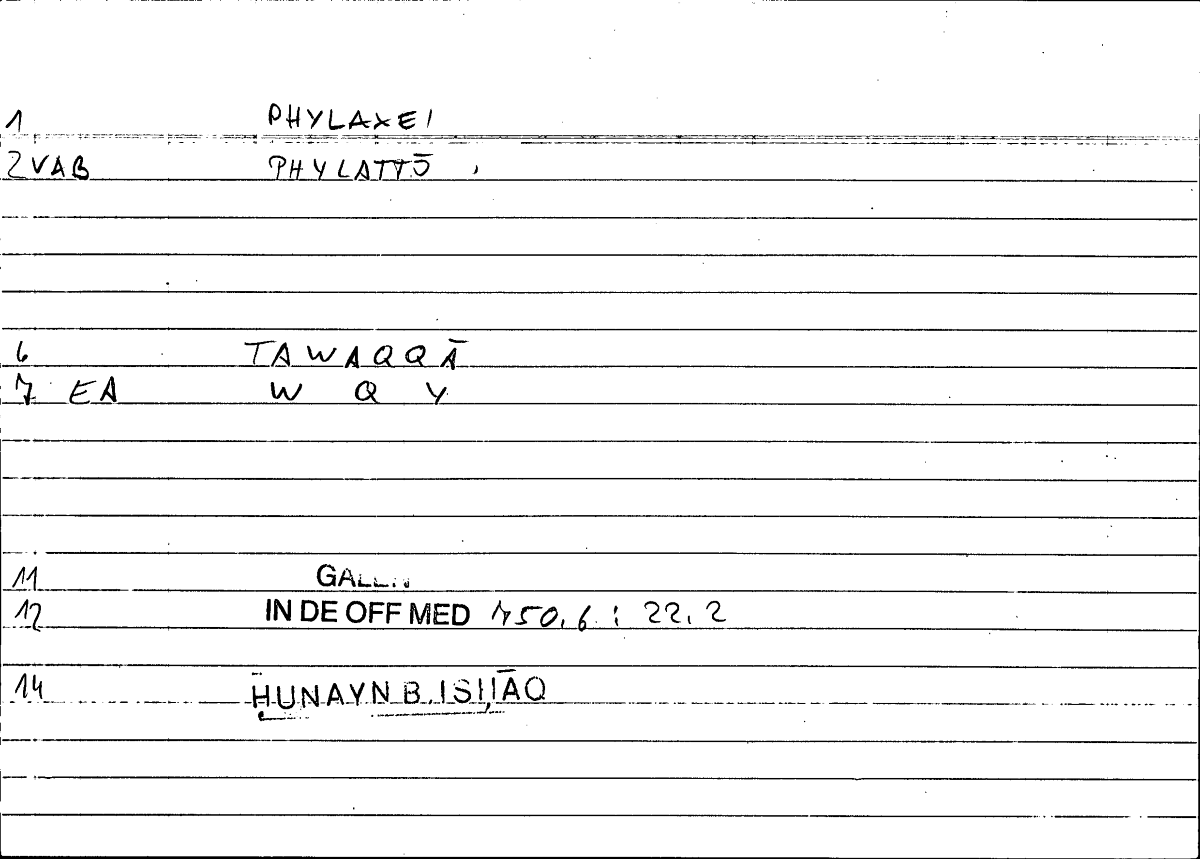 1 PHYLAXEI
2 VAB PHYLATTŌ
6 TAWAQQĀ
7 EA W Q Y
11 GALEN
12 IN DE OFF MED 750,6 : 22,2
14 ḤUNAYN B. ISḤĀQ